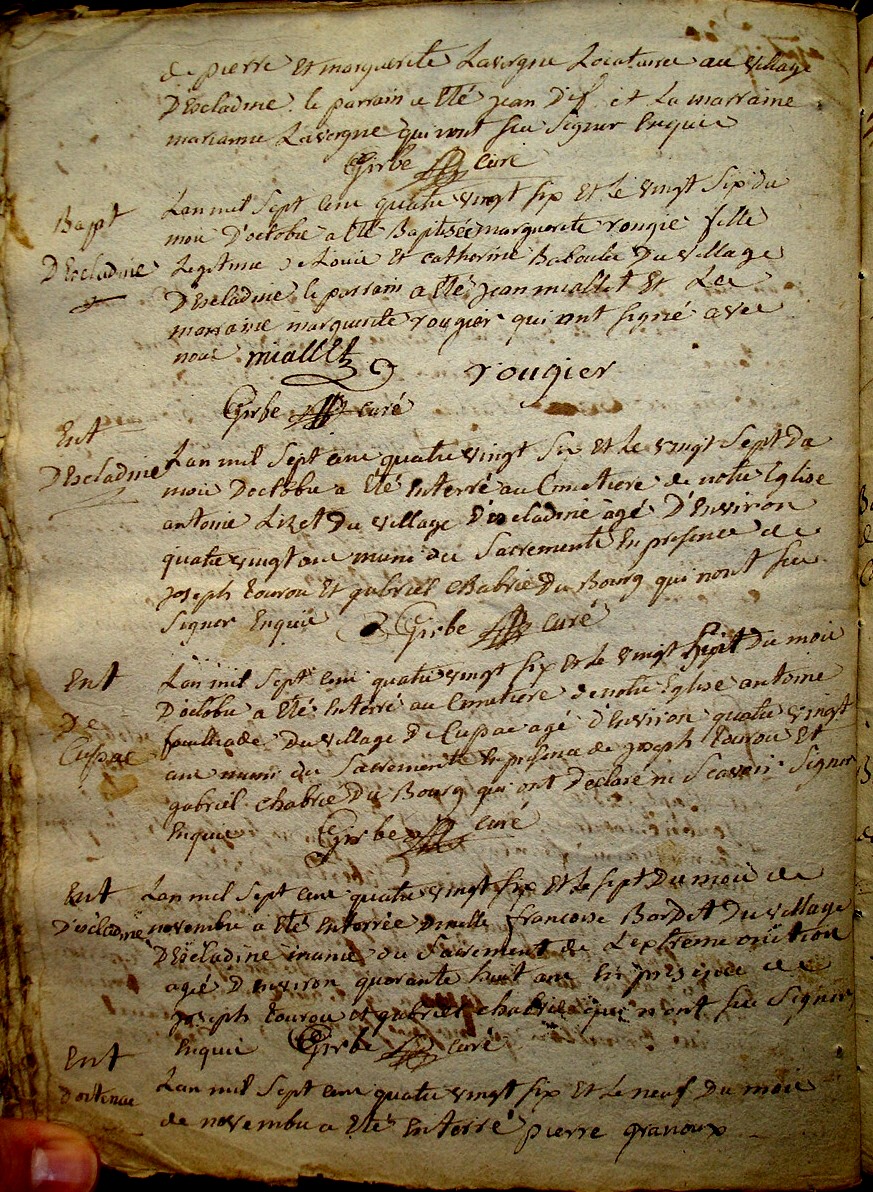 de pierre Et marguerite Lavergne Locataire au village
D'Escladine. le parrain a Eté jean Dif et La marraine
marianne Lavergne qui n'ont sçu signer Enquis
Girbe curé
Bapt
D'Escladine
Lan mil sept cens quatre vingt six Et Le vingt six du
mois D'octobre a Eté Baptisée marguerite rougie fille
Legitime De Louis Et catherine Baboulie Du village
D'Escladine, le parrain a Eté jean miallet Et La
marraine marguerite rougier qui ont signé avec
nous miallet rougier
Girbe curé
Ent
D'Escladine
Lan mil sept cens quatre vingt six Et Le vingt sept Du
mois Doctobre a Eté Enterré au Cimetiere de notre Eglise
antoine Lizet Du village D'escladine agé D'Environ
quatre vingt ans muni des Sacrements En presence de
joseph tourou Et gabriel chabrie Du Bourg qui n'ont sçu
signer Enquis Girbe curé
Ent
De
Cussac
Lan mil sept cens quatre vingt six Et Le vingt sept Du mois
D'octobre a Eté Enterré au Cimetiere de notre Eglise antoine
Du village De Cussac agé d'Environ quatre vingt
ans muni des Sacrements En presence de joseph tourou Et
gabriel chabrie Du Bourg qui ont Declaré ne Scavoir Signer
Enquis Girbe curé
Ent
D'escladine
Lan mil sept cens quatre vingt six Et Le sept Du mois de
novembre a Eté Enterrée Dmelle francoise Bardet Du village
D'Escladine munie du Sacrement de L'extreme onction
agée D'environ quarante huit ans En presence de
joseph tourou et gabriel chabrie qui n'ont sçu Signer
Enquis Girbe curé
Ent
Lan mil sept cens quatre vingt six Et Le neuf Du mois
de novembre a Eté Enterré pierre granoux